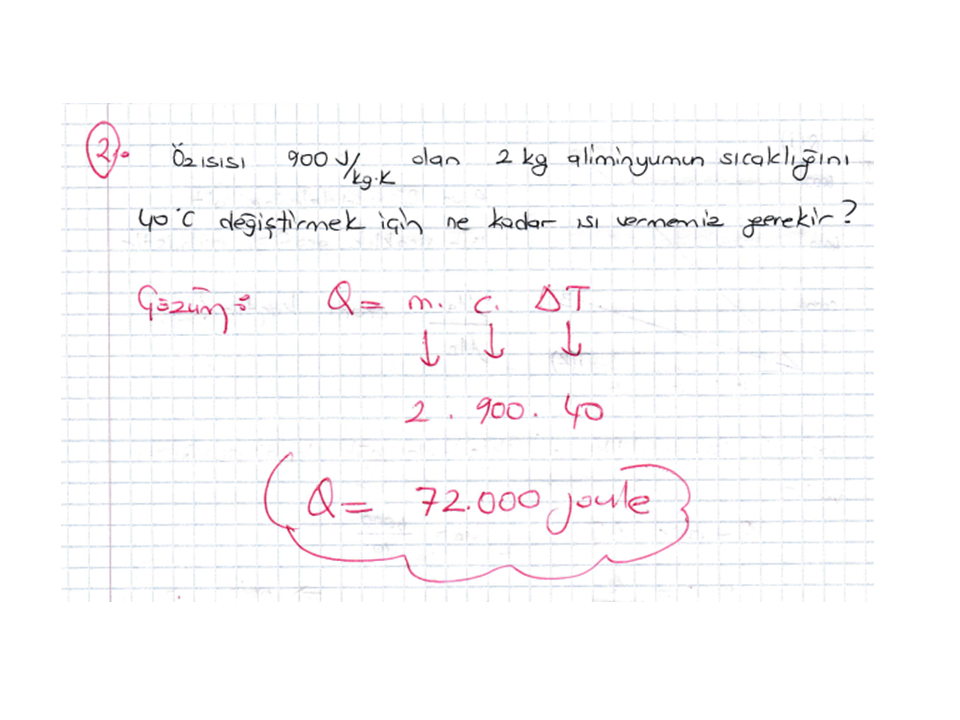 2). Özısısı 900 J/kg.K olan 2 kg aliminyumun sıcaklığını
40°C değiştirmek için ne kadar ısı vermemiz gerekir?
Çözüm: Q= m. c. ΔT
↓ ↓ ↓
2 . 900 . 40
Q= 72.000 joule